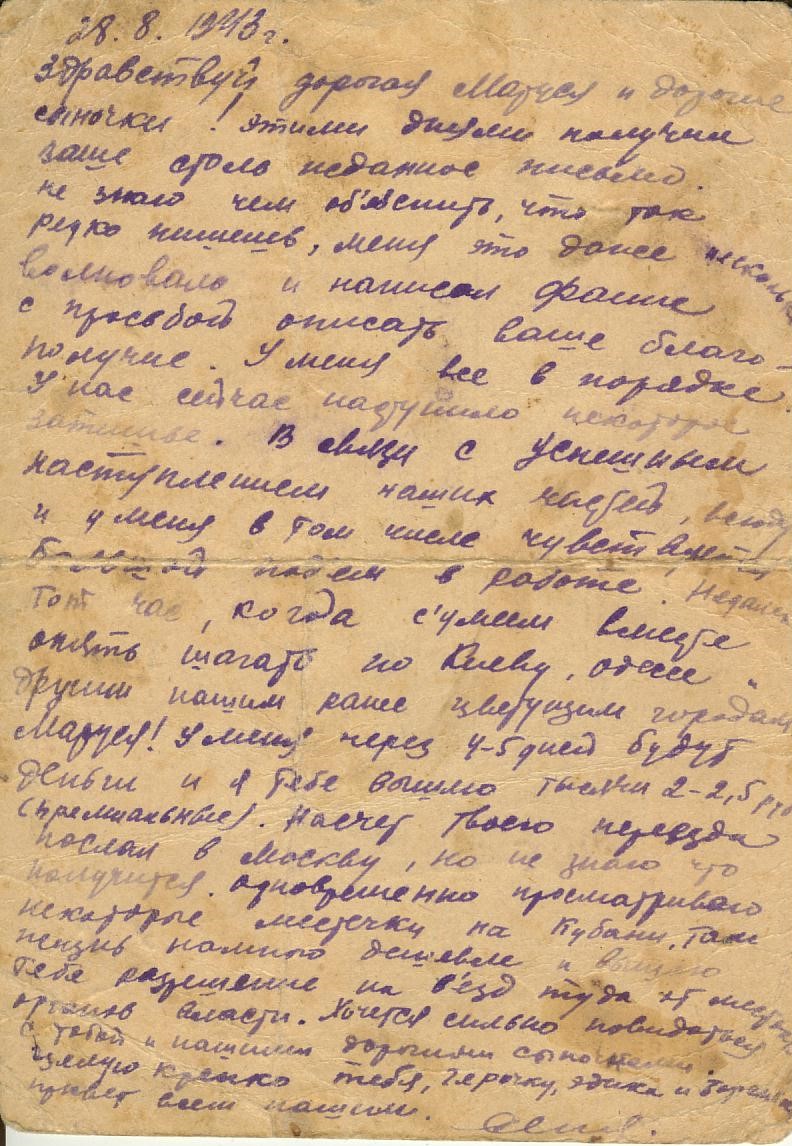 28. 8. 1943 г.
Здравствуй дорогая Маруся и дорогие
сыночки! Этими днями получил
ваше столь неданное письмо.
не знаю чем об'яснить, что так
редко пишешь, меня это даже несколько
волновало и написал Фаине
с просьбой описать ваше благо-
получие. У меня все в порядке.
У нас сейчас наступило некоторое
затишье. В связи с успешным
наступлением наших частей, всюду
и у меня в том числе чувствуется
большой под'ем в работе. Недалек
тот час, когда с'умеем вместе
опять шагать по Киеву, Одессе и
другим нашим ранее цветущим городам
Маруся! У меня через 4-5 дней будут
деньги и я тебе вышлю тысячи 2-2,5 руб
(премиальные). Насчет твоего переезда
послал в Москву, но не знаю что
получится. Одновременно просматриваю
некоторые местечки на Кубани. Там
жизнь намного дешевле и вышлю
тебе разрешение на в'езд туда от местных
органов власти. Хочется сильно повидаться
с тобой и нашими дорогими сыночками.
Целую крепко тебя, Герочку, Эдика и
привет всем нашим.